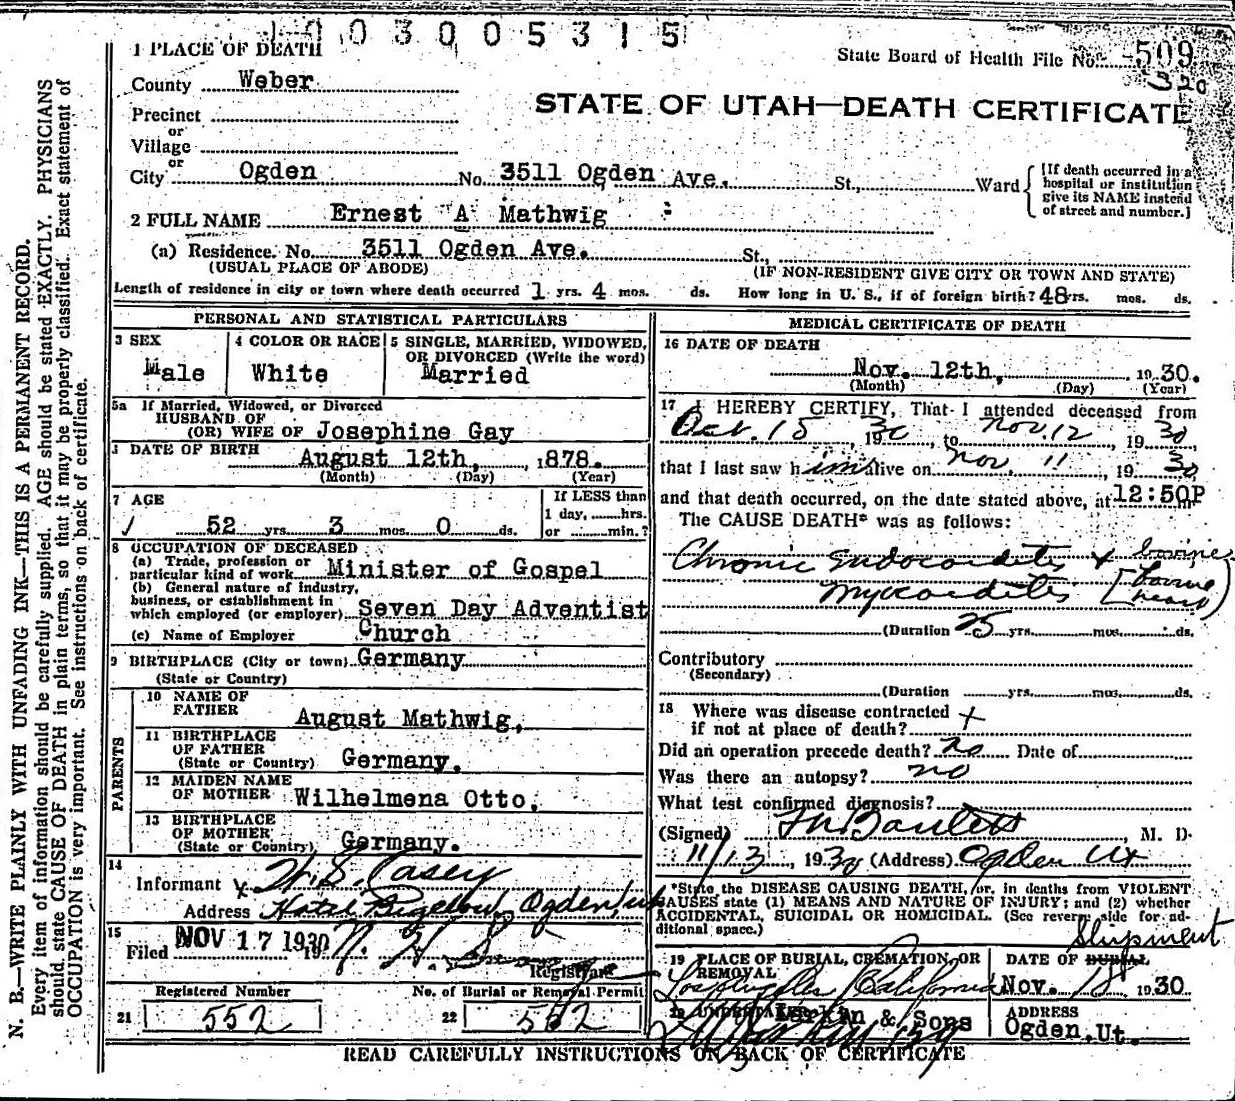 1003005315
1 PLACE OF DEATH
State Board of Health File No. 509
320
County Weber
STATE OF UTAH—DEATH CERTIFICATE
Precinct
or
Village
or
City Ogden No. 3511 Ogden Ave. St., Ward
[If death occurred in a hospital or institution give its NAME instead of street and number.]
2 FULL NAME Ernest A Mathwig
(a) Residence. No. 3511 Ogden Ave. St.,
(USUAL PLACE OF ABODE) (IF NON-RESIDENT GIVE CITY OR TOWN AND STATE)
Length of residence in city or town where death occurred 1 yrs. 4 mos. ds. How long in U. S., if of foreign birth? 48 yrs. mos. ds.
PERSONAL AND STATISTICAL PARTICULARS
3 SEX
Male
4 COLOR OR RACE
White
5 SINGLE, MARRIED, WIDOWED,
OR DIVORCED (Write the word)
Married
5a If Married, Widowed, or Divorced
HUSBAND OF
(OR) WIFE OF Josephine Gay
DATE OF BIRTH
August 12th, 1878.
(Month) (Day) (Year)
7 AGE
52 yrs. 3 mos. 0 ds.
If LESS than
1 day, hrs.
or min.?
8 OCCUPATION OF DECEASED
(a) Trade, profession or
particular kind of work Minister of Gospel
(b) General nature of industry,
business, or establishment in
which employed (or employer) Seven Day Adventist
(c) Name of Employer Church
9 BIRTHPLACE (City or town) Germany
(State or Country)
PARENTS
10 NAME OF
FATHER August Mathwig,
11 BIRTHPLACE
OF FATHER
(State or Country) Germany.
12 MAIDEN NAME
OF MOTHER Wilhelmena Otto,
13 BIRTHPLACE
OF MOTHER
(State or Country) Germany.
14
Informant W. S. Casey
Address Hotel Bigelow, Ogden, Ut
15
Filed NOV 17 1930 19
Registrar
Registered Number
21 552
No. of Burial or Removal Permit
22 552
MEDICAL CERTIFICATE OF DEATH
16 DATE OF DEATH
Nov. 12th, 1930.
(Month) (Day) (Year)
17 I HEREBY CERTIFY, That I attended deceased from
Oct. 15, 1930, to Nov. 12, 1930
that I last saw him alive on Nov. 11, 1930
and that death occurred, on the date stated above, at 12:50P m
The CAUSE DEATH* was as follows:
Chronic Endocarditis +
Myocarditis [bovine heart]
(Duration 25 yrs. mos. ds.
Contributory
(Secondary)
(Duration yrs. mos. ds.
18 Where was disease contracted
if not at place of death? x
Did an operation precede death? no Date of
Was there an autopsy? no
What test confirmed diagnosis?
(Signed) Bartlett, M. D.
11/13, 1930 (Address) Ogden Ut
*State the DISEASE CAUSING DEATH, or, in deaths from VIOLENT
CAUSES state (1) MEANS AND NATURE OF INJURY; and (2) whether
ACCIDENTAL, SUICIDAL OR HOMICIDAL. (See reverse side for ad-
ditional space.)
19 PLACE OF BURIAL, CREMATION, OR
REMOVAL
Los Angeles California
Shipment
DATE OF BURIAL
Nov. 1930
20 UNDERTAKER Larkin & Sons
ADDRESS
Ogden, Ut.
READ CAREFULLY INSTRUCTIONS ON BACK OF CERTIFICATE
N. B.—WRITE PLAINLY WITH UNFADING INK—THIS IS A PERMANENT RECORD.
Every item of information should be carefully supplied. AGE should be stated EXACTLY. PHYSICIANS
should state CAUSE OF DEATH in plain terms, so that it may be properly classified. Exact statement of
OCCUPATION is very important. See instructions on back of certificate.